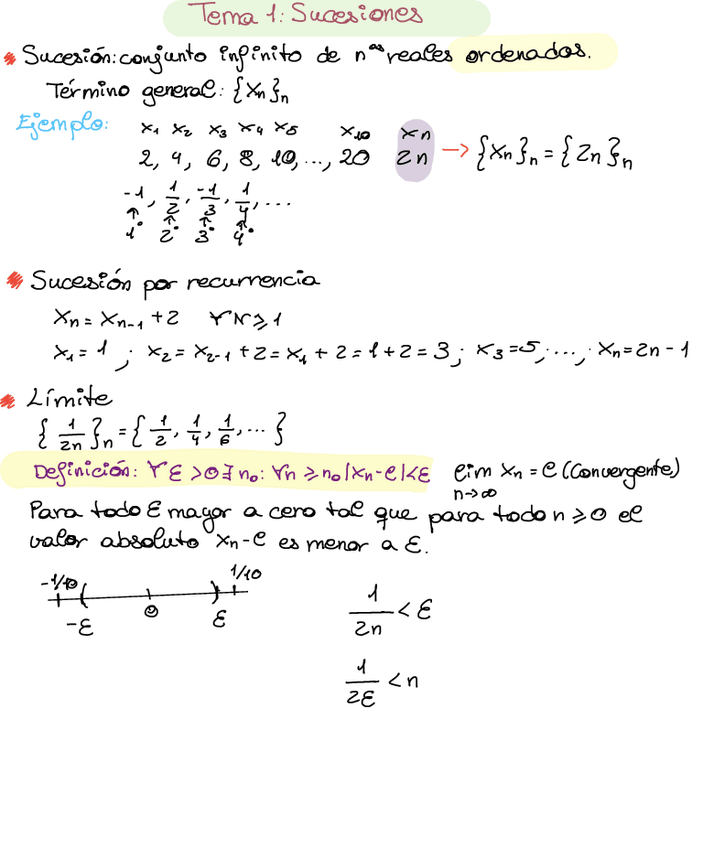 Tema 1: Sucesiones
Sucesión: conjunto infinito de nᵒˢ reales ordenados.
Término general: {xₙ}ₙ
Ejemplo: x₁ x₂ x₃ x₄ x₅ x₁₀ xₙ
2, 4, 6, 8, 10, ..., 20 2n → {xₙ}ₙ = {2n}ₙ
-1, 1/2, -1/3, 1/4, ...
↑ ↑ ↑ ↑
1º 2º 3º 4º
Sucesión por recurrencia
xₙ = xₙ₋₁ + 2 ∀N ≥ 1
x₁ = 1 ; x₂ = x₂₋₁ + 2 = x₁ + 2 = 1 + 2 = 3 ; x₃ = 5 ; ... ; xₙ = 2n - 1
Límite
{1/2n}ₙ = {1/2, 1/4, 1/6, ...}
Definición: ∀ε > 0 ∃ n₀: ∀n ≥ n₀ |xₙ - l| < ε lim xₙ = l (Convergente)
n→∞
Para todo ε mayor a cero tal que para todo n ≥ 0 el
valor absoluto xₙ - l es menor a ε.
-1/10 1/10
-ε 0 ε
1/2n < ε
1/2ε < n